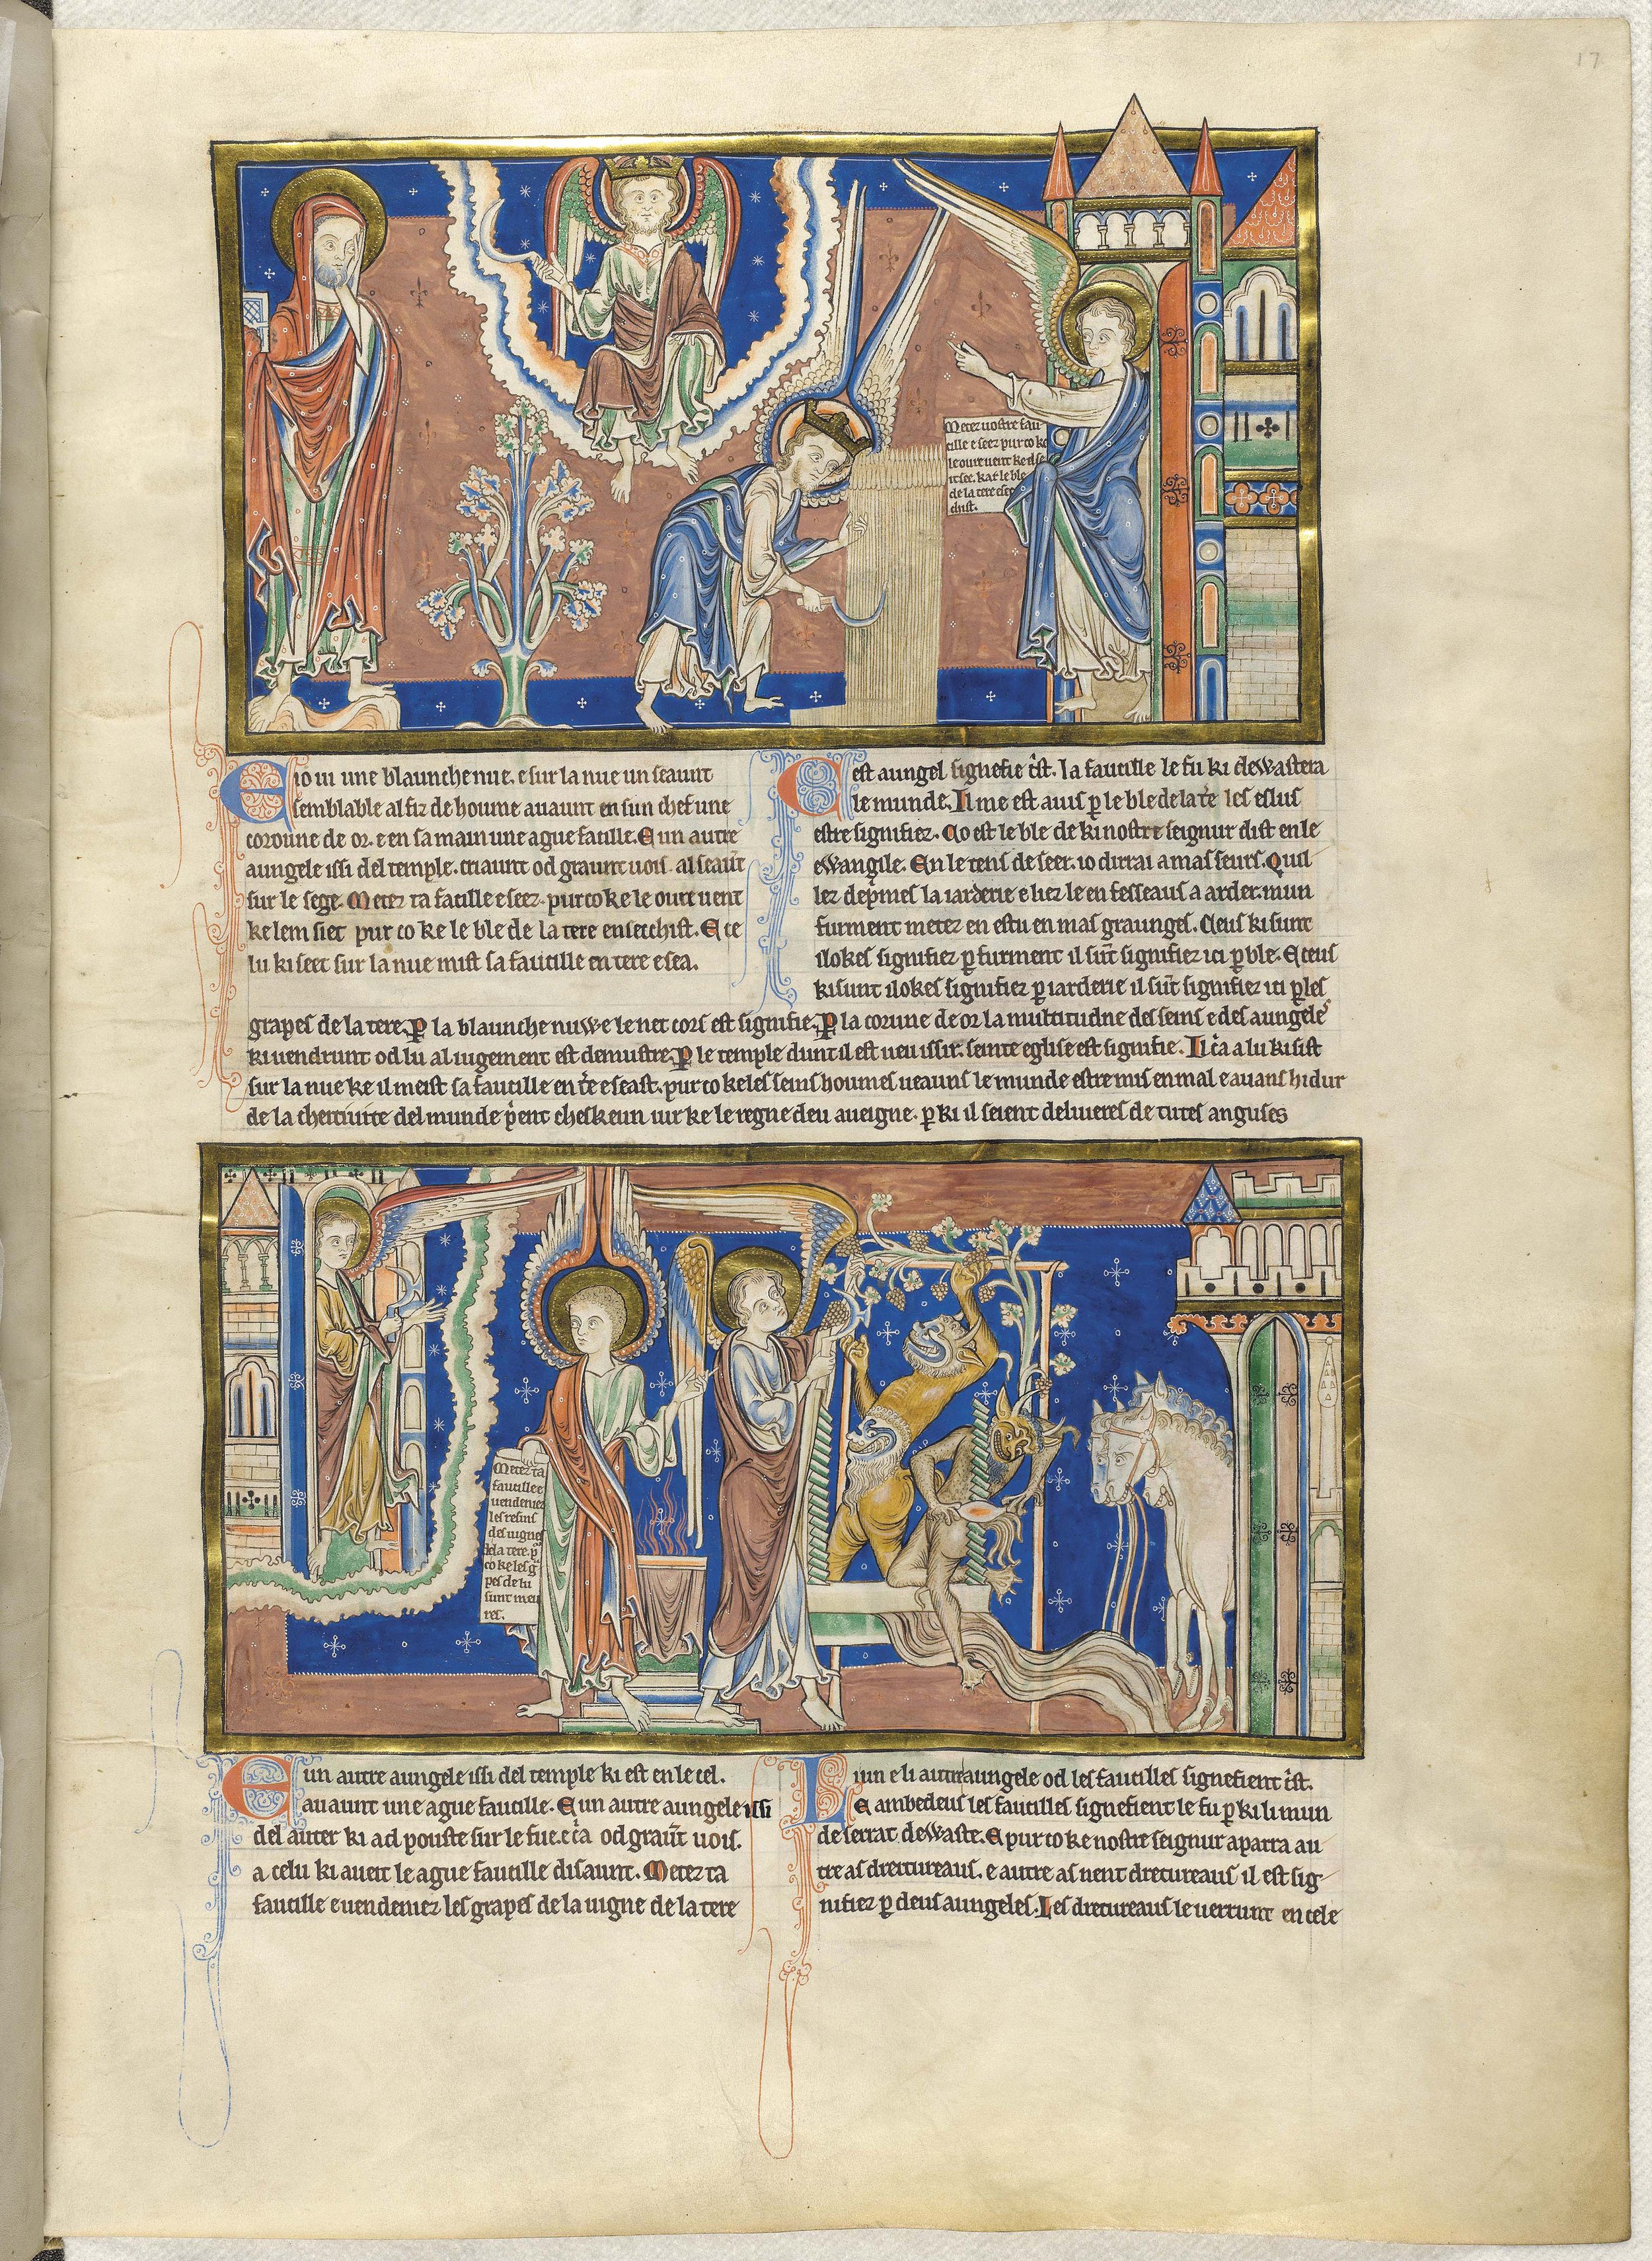 17
Metez vostre fau
cille e seez pur co ke
le oure vent ke il se
it see. kar le ble
de la tere ese
chist.
E io vi une blaunche nue. e sur la nue un seaunt
semblable al fiz de houme avaunt en sun chef une
coroune de or. e en sa main une ague faucille. E un autre
aungele issi del temple. criaunt od graunt vois. al seaūt
sur le sege. Metez ta faucille e seez. pur co ke le oure vent
ke lem siet pur co ke le ble de la tere ensecchist. E ce
lu ki seet sur la nue mist sa faucille en tere e sea.
Cest aungel signefie c̄st. la faucille le fu ki dewastera
le munde. Il me est avis ꝑ le ble de la t̄e les eslus
estre signifiez. Co est le ble de ki nostre seignur dist en le
ewangile. En le tens de seer. io dirrai a mas seurs. Quil
lez dep̄mes la iarderie e liez le en fesseaus a arder. mun
furment metez en estu en mas graunges. Ceus ki sunt
ilokes signifiez ꝑ furment il sūt signifiez ici ꝑ ble. E ceus
ki sunt ilokes signifiez ꝑ iarderie il sūt signifiez ici ꝑ les
grapes de la tere. ꝑ la blaunche nuwe le net cors est signifie. ꝑ la corune de or la multitudne des seins e des aungeles
ki vendrunt od lu al iugement est demustre. ꝑ le temple dunt il est veu issir. seinte eglise est signifie. Il c̄a a lu ki sist
sur la nue ke il meist sa faucille en t̄e e seast. pur co ke les seins houmes veauns le munde estre mis en mal e avans hidur
de la cheitivite del munde p̄ent cheskeun iur ke le regne deu aveigne. ꝑ ki il seient deliveres de tutes anguses
Metez ta
faucille e
vendenies
les resins
des vigne
de la tere. ꝑ
co ke les ḡ
pes de lu
sunt meu
res.
E un autre aungele issi del temple ki est en le cel.
avaunt une ague faucille. E un autre aungele issi
del auter ki ad pouste sur le fu e c̄a od graūt vois.
a celu ki aveit le ague faucille disaunt. Metez ta
faucille e vendeniez les grapes de la vigne de la tere
Liun e li autre aungele od les faucilles signefient c̄st.
E ambedeus les faucilles signefient le fu ꝑ ki li mun
de serrat dewaste. E pur co ke nostre seignur aparra au
tre as dreitureaus. e autre as nent dreitureaus il est sig
nifiez ꝑ deus aungeles. Les dreitureaus le verrunt en cele